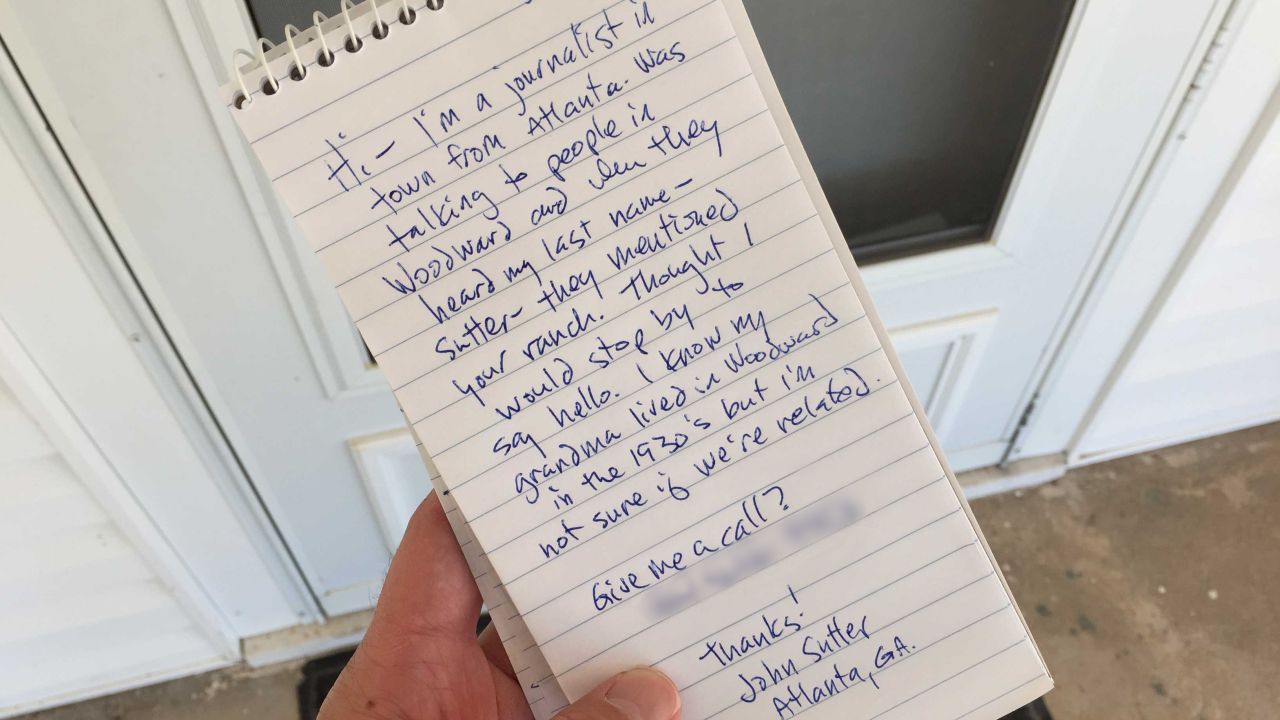 Hi - I'm a journalist in
town from Atlanta. Was
talking to people in
Woodward and when they
heard my last name -
Sutter - they mentioned
your ranch. Thought I
would stop by to
say hello. I know my
grandma lived in Woodward
in the 1930's but I'm
not sure if we're related.
Give me a call?
Thanks!
John Sutter
Atlanta, GA.